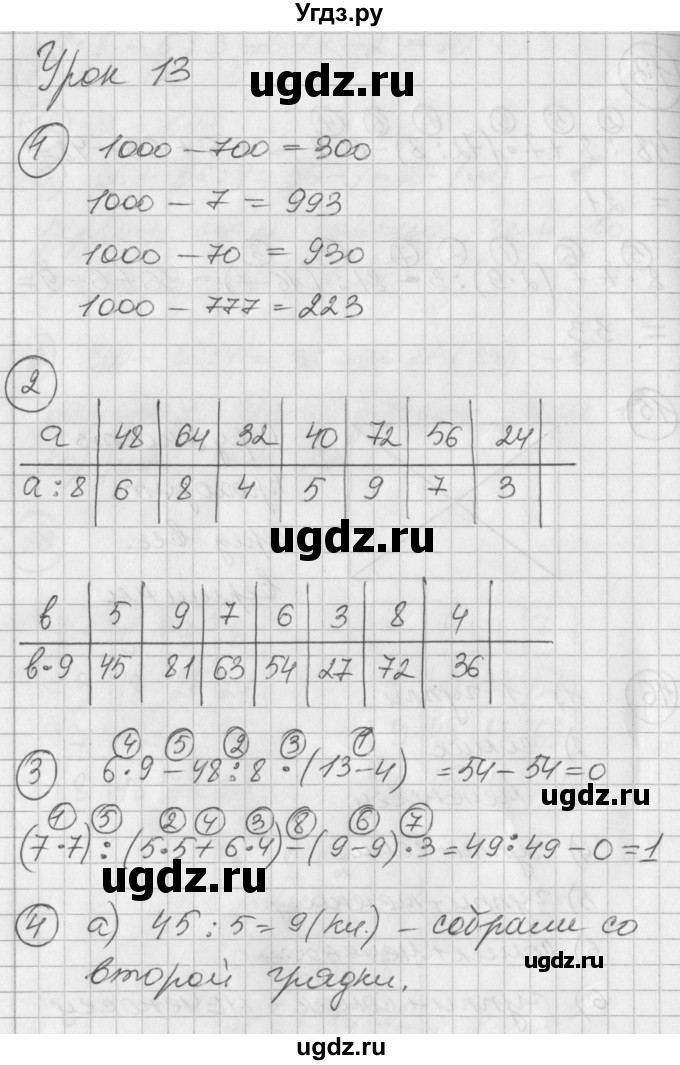 Угдз.ру
Урок 13
ugdz.ru
1 1000 – 700 = 300
1000 – 7 = 993
1000 – 70 = 930
1000 – 777 = 223
2
a 48 64 32 40 72 56 24
a : 8 6 8 4 5 9 7 3
ugdz.ru
в 5 9 7 6 3 8 4
в · 9 45 81 63 54 27 72 36
4 5 2 3 1
3 6 · 9 – 48 : 8 · (13 – 4) = 54 – 54 = 0
1 5 2 4 3 8 6 7
(7 · 7) : (5 · 5 + 6 · 4) – (9 – 9) · 3 = 49 : 49 – 0 = 1
ugdz.ru
4 а) 45 : 5 = 9 (кл.) – собрали со
второй грядки.
ugdz.ru
ugdz.ru